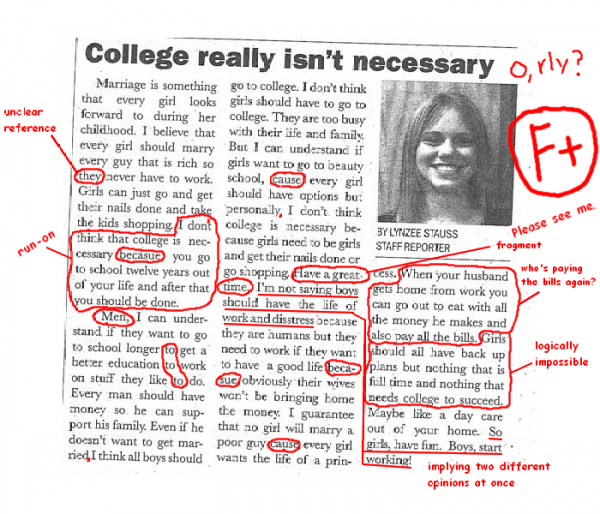 College really isn't necessary
o, rly?
Marriage is something
that every girl looks
forward to during her
childhood. I believe that
every girl should marry
every guy that is rich so
they never have to work.
Girls can just go and get
their nails done and take
the kids shopping. I dont
think that college is nec-
cessary becasue you go
to school twelve years out
of your life and after that
you should be done.
Men, I can under-
stand if they want to go
to school longer to get a
better education to work
on stuff they like to do.
Every man should have
money so he can sup-
port his family. Even if he
doesn't want to get mar-
ried, I think all boys should
go to college. I don't think
girls should have to go to
college. They are too busy
with their life and family.
But I can understand if
girls want to go to beauty
school, cause every girl
should have options but
personally, I don't think
college is necessary be-
cause girls need to be girls
and get their nails done or
go shopping. Have a great
time. I'm not saying boys
should have the life of
work and disstress because
they are humans but they
need to work if they want
to have a good life beca-
sue obviously their wives
won't be bringing home
the money. I guarantee
that no girl will marry a
poor guy cause every girl
wants the life of a prin-
BY LYNZEE STAUSS
STAFF REPORTER
cess. When your husband
gets home from work you
can go out to eat with all
the money he makes and
also pay all the bills. Girls
should all have back up
plans but nothing that is
full time and nothing that
needs college to succeed.
Maybe like a day care
out of your home. So
girls, have fun. Boys, start
working!
F+
Please see me.
unclear
reference
run-on
fragment
who's paying
the bills again?
logically
impossible
implying two different
opinions at once